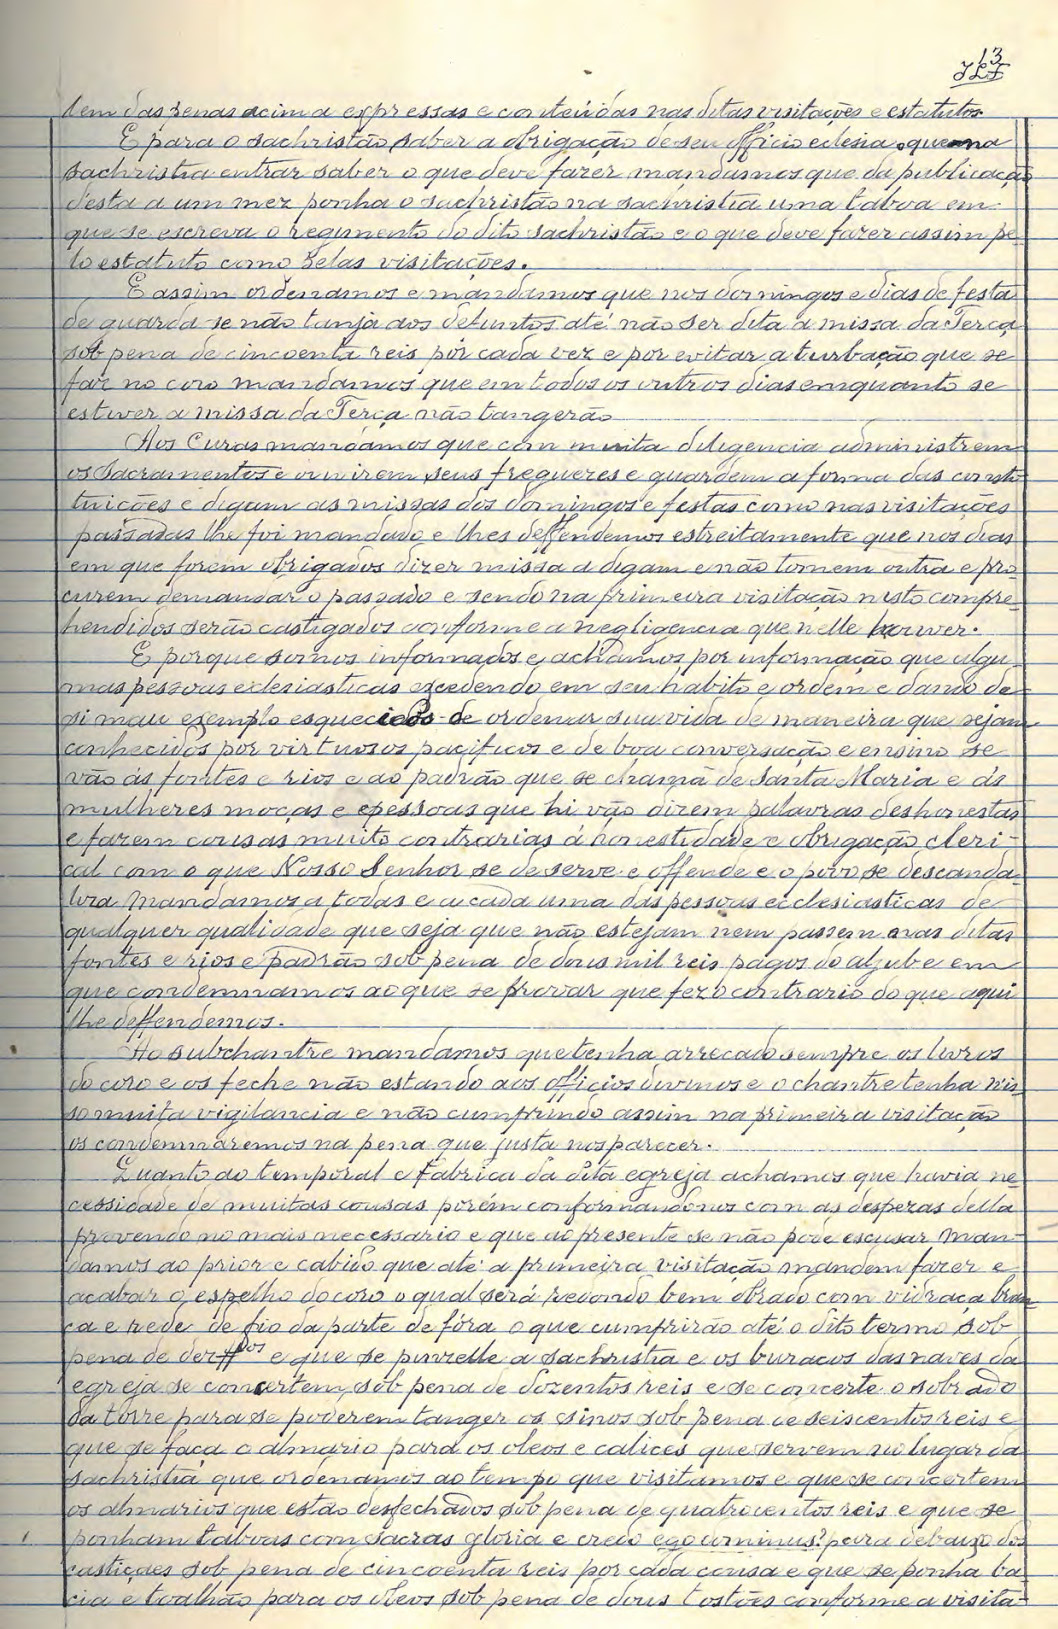 13
tem das penas acima expressas e conteúdas nas ditas visitações e estatutos
E para o sachristão saber a obrigação de seu officio e que na
sachristia entrar saber o que deve fazer mandamos que da publicação
desta a um mez ponha o sachristão na sachristia uma taboa em
que se escreva o regimento do dito sachristão e o que deve fazer assim pe-
lo estatuto como pelas visitações.
E assim ordenamos e mandamos que nos domingos e dias de festa
de guarda se não tanja aos defuntos até não ser dita a missa da Terça
sob pena de cincoenta reis por cada vez e por evitar a turbação que se
faz no coro mandamos que em todos os outros dias emquanto se
estiver a missa da Terça não tangerão
Aos Curas mandamos que com muita diligencia administrem
os Sacramentos e ouvirem seus freguezes e guardem a forma das consti-
tuições e digam as missas dos domingos e festas como nas visitações
passadas lhe foi mandado e lhes deffendemos estreitamente que nos dias
em que forem obrigados dizer missa a digam e não tomem outra e pro-
curem demandar o passado e sendo na primeira visitação nisto compre-
hendidos serão castigados conforme a negligencia que nelle houver.
E porque somos informados e achamos por informação que algu-
mas pessoas eclesiasticas excedendo em seu habito e ordem e dando de
si mau exemplo esquecidos de ordenar sua vida de maneira que sejam
conhecidos por virtuosos pacificos e de boa conversação e ensino se
vão ás fontes e rios e ao padrão que se chama de Santa Maria e ás
mulheres moças e pessoas que hi vão dizem palavras deshonestas
e fazem cousas muito contrarias á honestidade e obrigação cleri-
cal com o que Nosso Senhor se deserve e offende e o povo se descanda-
liza Mandamos a todas e a cada uma das pessoas ecclesiasticas de
qualquer qualidade que seja que não estejam nem passem nas ditas
fontes e rios e padrão sob pena de dous mil reis pagos do aljube em
que condemnamos ao que se provar que fez o contrario do que aqui
lhe deffendemos.
Ao subchantre mandamos que tenha arrecado sempre os livros
do coro e os feche não estando aos officios divinos e o chantre tenha nis-
so muita vigilancia e não cumprindo assim na primeira visitação
os condemnaremos na pena que justa nos parecer.
Quanto ao temporal e fabrica da dita egreja achamos que havia ne-
cessidade de muitas cousas porém conformandonos com as despezas della
provendo no mais necessario e que ao presente se não pode escusar Man-
damos ao prior e cabido que até a primeira visitação mandem fazer e
acabar o espelho do coro o qual será redondo bem obrado com vidraça bran-
ca e rede de fio da parte de fóra o que cumprirão até o dito termo sob
pena de dez e que se pinzelle a sachristia e os buracos das naves da
egreja se concertem sob pena de dozentos reis e se concerte o sobrado
da torre para se poderem tanger os sinos sob pena de seiscentos reis e
que se faça o almario para os oleos e calices que servem no lugar da
sachristia que ordenamos ao tempo que visitamos e que se concertem
os almarios que estão desfechados sob pena de quatrocentos reis e que se
ponham taboas com sacras gloria e credo para debaixo dos
castiçaes sob pena de cincoenta reis por cada cousa e que se ponha ba-
cia e toalhão para os oleos sob pena de dous tostões conforme a visita-